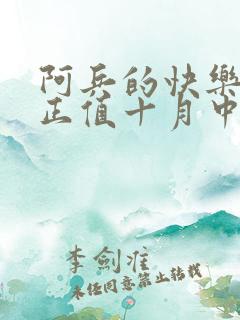 阿兵的快樂
正值十月中
李劍淮
未經同意禁止轉載